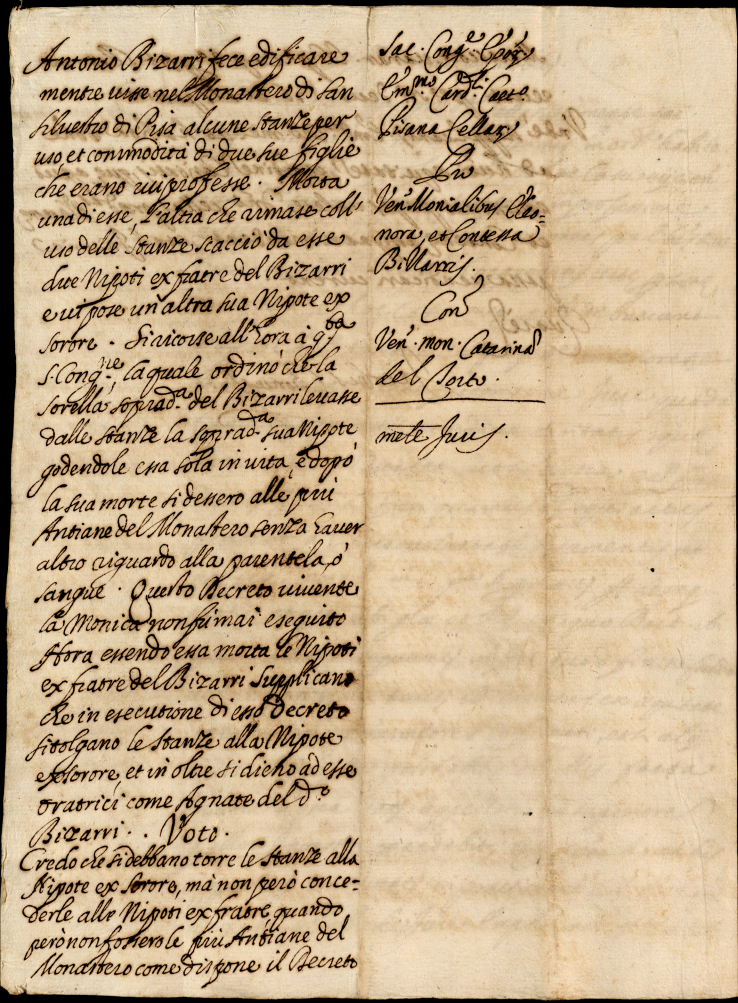 Antonio Bizarri fece edificare
mentre visse nel Monastero di San
Silvestro di Pisa alcune stanze per
uso, et commodità di due sue figlie
che erano ivi professe. Morta
una di esse, l'altra che rimase coll'
uso delle stanze scacciò da esse
due Nipoti ex fratre del Bizarri
e vi pose un'altra sua Nipote ex
sorore. Si ricorse all'hora à q.sta
S. Cong.ne, la quale ordinò che la
sorella soprad.a del Bizarri levasse
dalle stanze la soprad.a sua Nipote
godendole essa sola in vita, e dopò
la sua morte si dessero alle più
Antiane del Monastero senza haver
altro riguardo alla parentela, ò
sangue. Questo Decreto vivente
la Monica non fù mai eseguito
Hora essendo essa morta le Nipoti
ex fratre del Bizarri supplicano
che in esecutione di esso Decreto
si tolgano le stanze alla Nipote
ex sorore, et in oltre si dieno ad esse
oratrici come Agnate del d.o
Bizarri. . Voto.
Credo che si debbano torre le stanze alla
Nipote ex sorore, mà non però conce=
derle alle Nipoti ex fratre, quando
però non fossero le più Antiane del
Monastero come dispone il Decreto
Sac. Cong.e
Em.mo Card.li Caet.o
Pisana Cellar
Pro
Ven. Monialibus Eleo=
nora, et Contessa
Bizarris.
Con
Ven. mon. Catarina
del Torto.